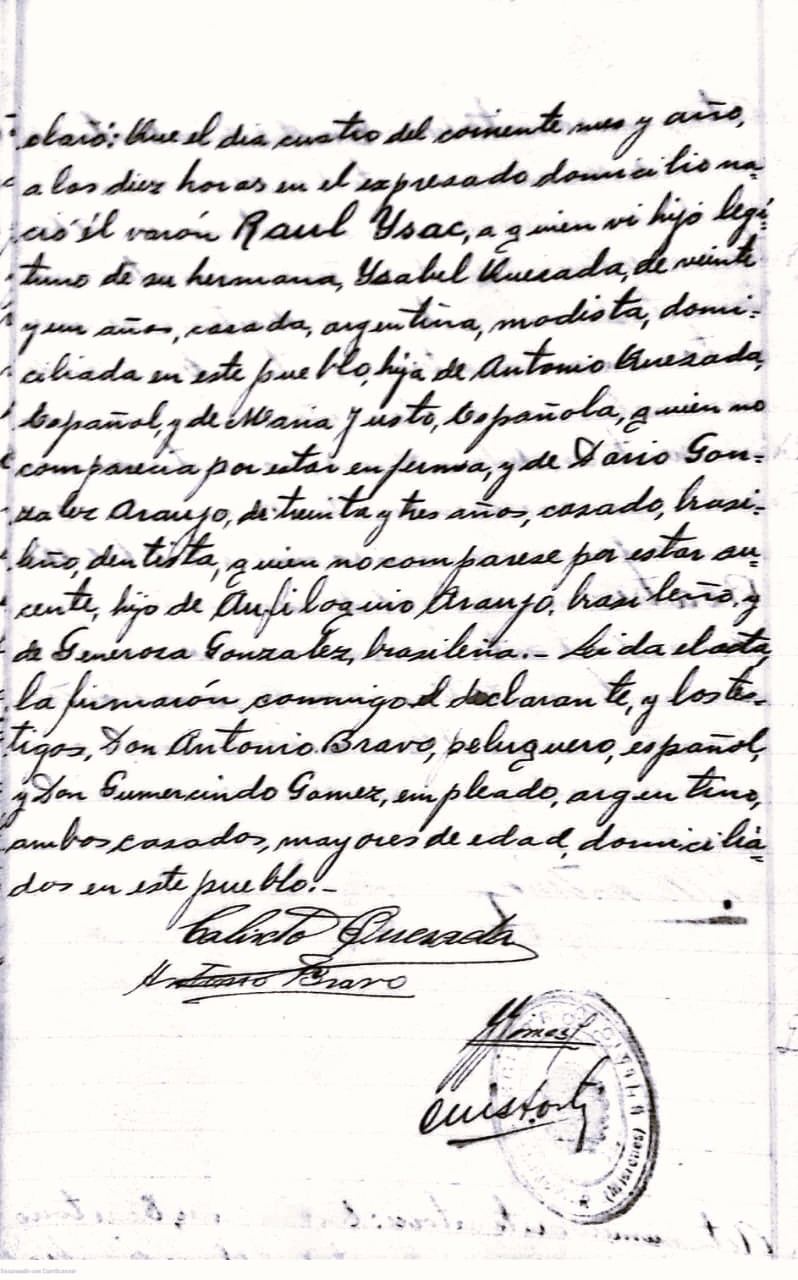 claró: Que el dia cuatro del corriente mes y año,
a las diez horas en el expresado domicilio na-
ció él varón Raul Ysac, a quien vi hijo legi-
timo de su hermana, Ysabel Quesada, de veinte
y un años, casada, argentina, modista, domi-
ciliada en este pueblo, hija de Antonio Quesada,
Español, y de Maria Justo, Española, quien no
comparecia por estar enferma, y de Dario Gon-
zalez Araujo, de treinta y tres años, casado, brasi-
leño, dentista, quien no comparese por estar au-
cente, hijo de Anfiloquio Araujo, brasileño, y
de Generosa Gonzalez, brasileña.- Leida el acta,
la firmarón conmigo el declarante, y los tes-
tigos, Don Antonio Bravo, peluquero, español,
y Don Gumercindo Gomez, empleado, argentino,
ambos casados, mayores de edad, domicilia-
dos en este pueblo.-
Calixto Quesada
Antonio Bravo
GGomez
(Misiones)
Escaneado con CamScanner